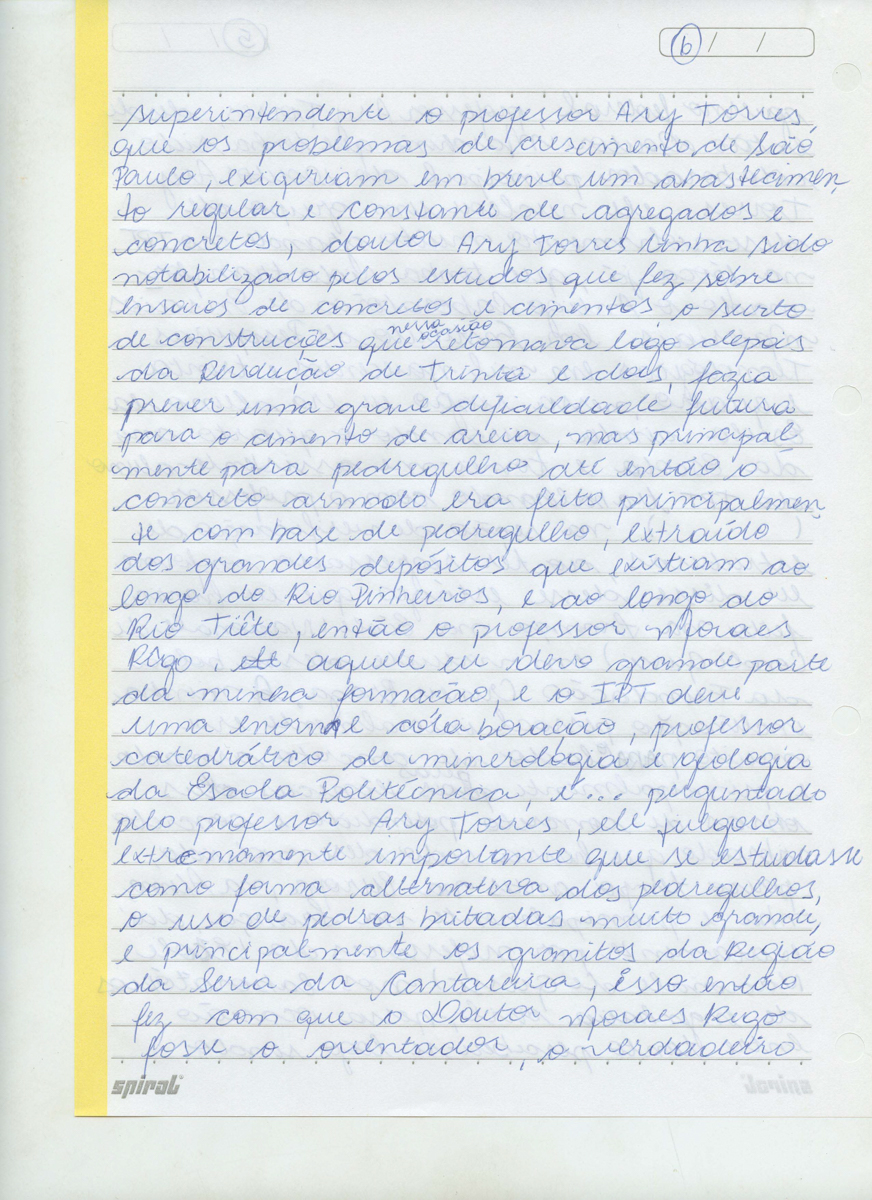 6 / /
superintendente o professor Ary Torres,
que os problemas de crescimento de São
Paulo, exigiriam em breve um abastecimen
to regular e constante de agregados e
concretos, doutor Ary Torres tinha sido
notabilizado pelos estudos que fez sobre
ensaios de concretos e cimentos, o surto
de construções que nessa ocasião retomava logo depois
da Revolução de Trinta e dois, fazia
prever uma grave dificuldade futura
para o cimento de areia, mas principal
mente para pedregulho até então o
concreto armado era feito principalmen
te com base de pedregulho, extraído
dos grandes depósitos que existiam ao
longo do Rio Pinheiros, e ao longo do
Rio Tiête, então o professor Moraes
Rêgo, aquele eu devo grande parte
da minha formação, e o IPT deve
uma enorme colaboração, professor
catedrático de minerologia e geologia
da Escola Politécnica, e... perguntado
pelo professor Ary Torres, ele julgou
extremamente importante que se estudasse
como forma alternativa dos pedregulhos,
o uso de pedras britadas muito grande,
e principalmente os granitos da Região
da Serra da Cantareira, isso então
fez com que o Doutor Moraes Rego
fosse o orientador, o verdadeiro
spiral